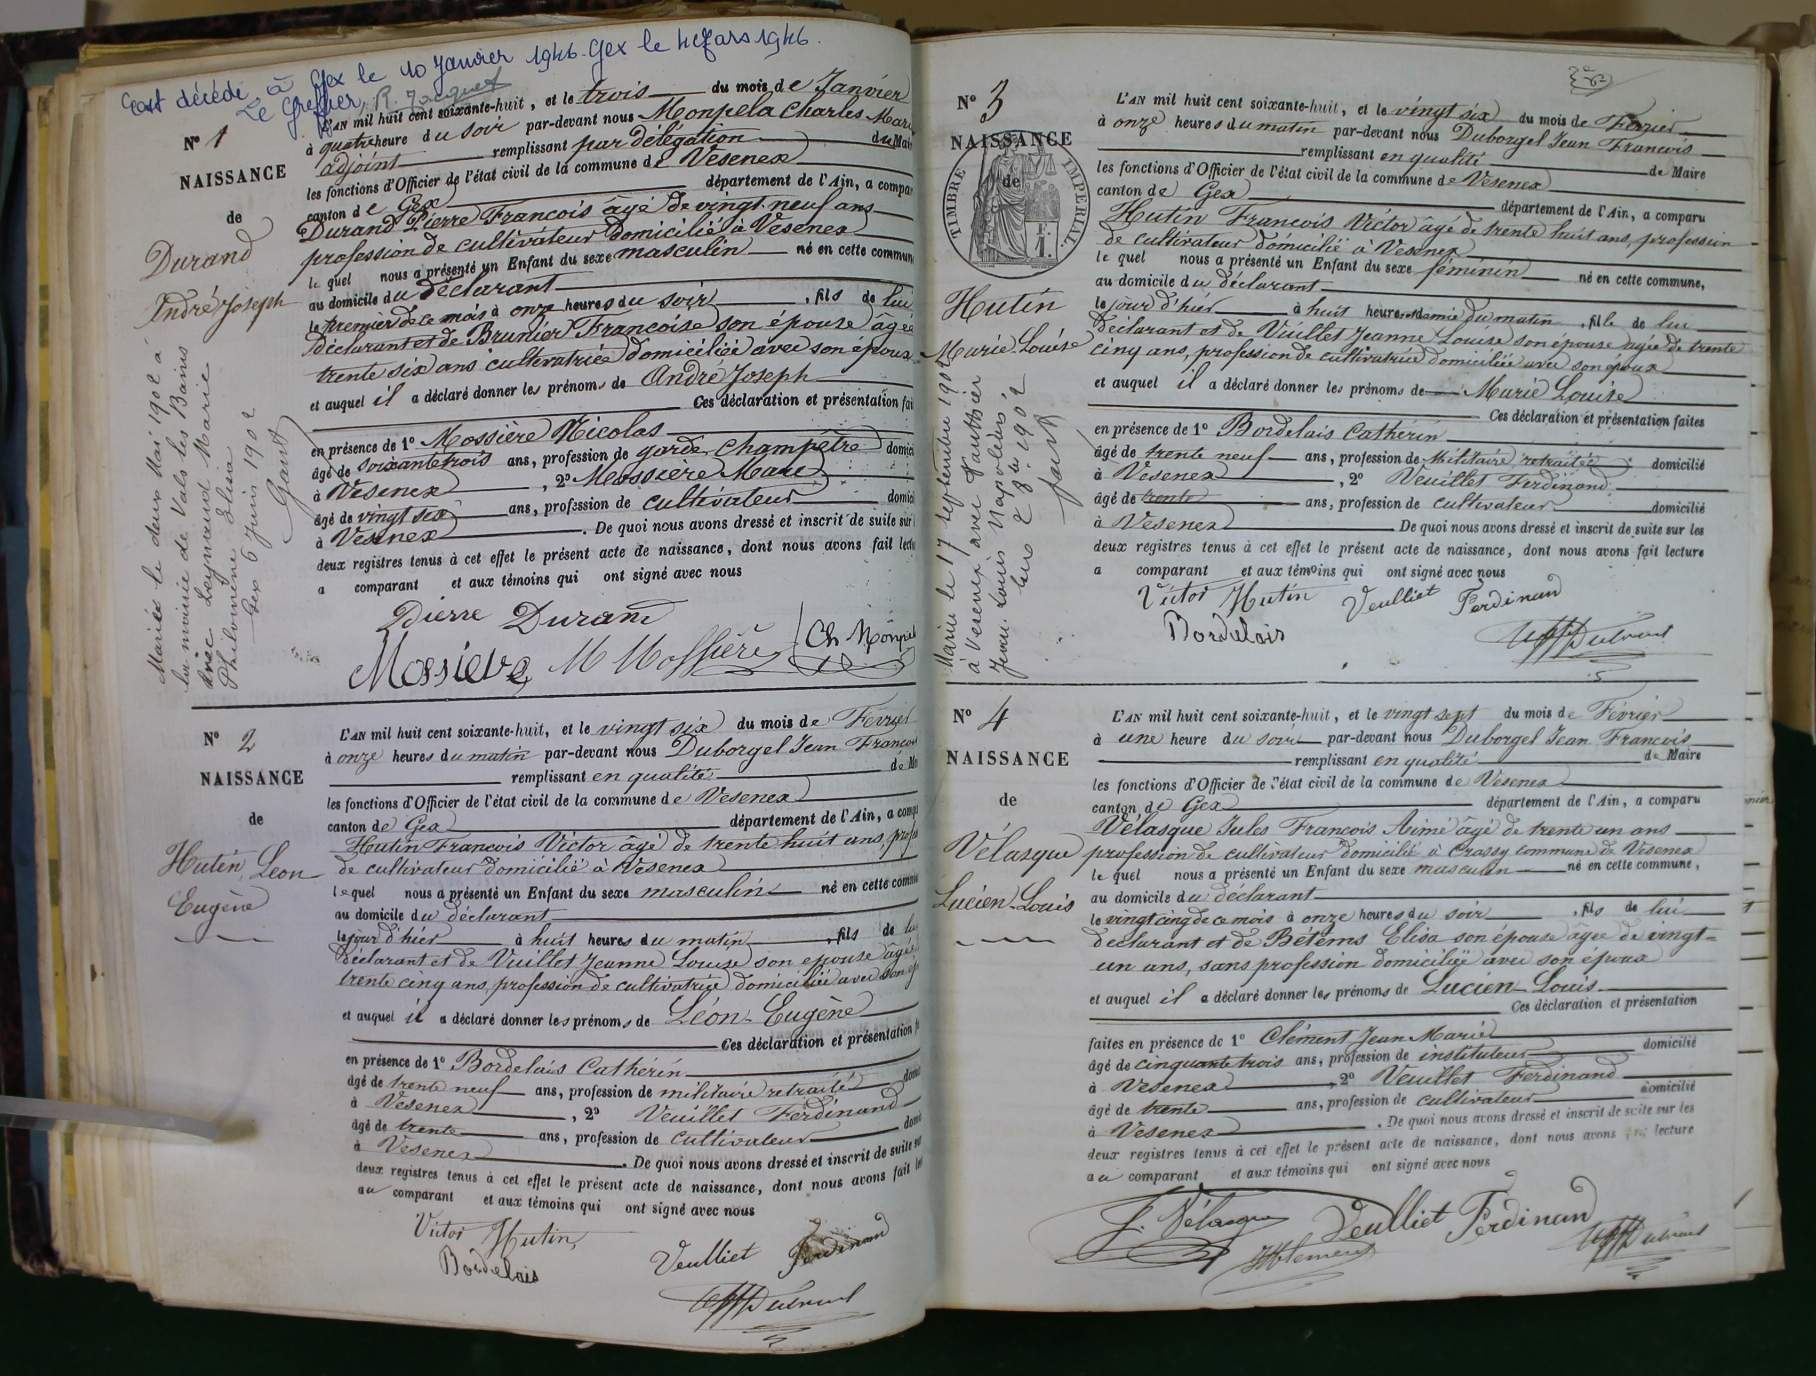 Est décédé à Gex le 10 Janvier 1946. Gex le 4 Mars 1946.
Le Greffier, R. Jacquet
N° 1
NAISSANCE
de
Durand
André Joseph
Mariée le deux Mai 1902 à
la mairie de Vals les Bains
avec Leynaud Marie
Philomène Elisa
Gex 6 Juin 1902
L'AN mil huit cent soixante-huit, et le trois du mois de Janvier
à quatre heure du soir par-devant nous Monpela Charles Mari
adjoint remplissant par délégation du Mai
les fonctions d'Officier de l'état civil de la commune de Vesenex
canton de Gex département de l'Ain, a compar
Durand Pierre François âgé de vingt-neuf ans
profession de cultivateur domicilié à Vesenex
le quel nous a présenté un Enfant du sexe masculin né en cette commun
au domicile du déclarant
le premier de ce mois à onze heures du soir, fils de lui
déclarant et de Brunier Françoise son épouse âgée
trente six ans cultivatrice domiciliée avec son époux
et auquel il a déclaré donner les prénoms de André Joseph
Ces déclaration et présentation fai
en présence de 1° Mossière Nicolas
âgé de soixante trois ans, profession de garde champêtre domici
à Vesenex, 2° Mossière Marie
âgé de vingt six ans, profession de cultivateur domici
à Vesenex. De quoi nous avons dressé et inscrit de suite sur
deux registres tenus à cet effet le présent acte de naissance, dont nous avons fait lectu
a comparant et aux témoins qui ont signé avec nous
Pierre Durand
Mossiere M Mossière Ch Monpel
N° 2
NAISSANCE
de
Hutin, Leon
Eugène
L'AN mil huit cent soixante-huit, et le vingt six du mois de Fevrier
à onze heures du matin par-devant nous Duborgel Jean Francois
remplissant en qualité de Ma
les fonctions d'Officier de l'état civil de la commune de Vesenex
canton de Gex département de l'Ain, a compa
Hutin Francois Victor âgé de trente huit ans, profes
de cultivateur domicilié à Vesenex
le quel nous a présenté un Enfant du sexe masculin né en cette commu
au domicile du déclarant
le jour d'hier à huit heures du matin, fils de lui
déclarant et de Vuillet Jeanne Louise son épouse âgée
trente cinq ans, profession de cultivatrice domiciliée avec son ép
et auquel il a déclaré donner les prénoms de Léon-Eugène
Ces déclaration et présentation f
en présence de 1° Bordelais Catherin
âgé de trente neuf ans, profession de militaire retraité domi
à Vesenex, 2° Veuillet Ferdinand
âgé de trente ans, profession de cultivateur domi
à Vesenex. De quoi nous avons dressé et inscrit de suite sur
deux registres tenus à cet effet le présent acte de naissance, dont nous avons fait lec
au comparant et aux témoins qui ont signé avec nous
Victor Hutin
Bordelais Veulliet Ferdinand
N° 3
NAISSANCE
de
TIMBRE IMPERIAL
F. 1.
Hutin
Marie-Louise
Mariée le 17 Septembre 1902
à Vesenex avec Gauthier
Jean Louis Napoléon
1902
L'AN mil huit cent soixante-huit, et le vingt six du mois de Fevrier
à onze heures du matin par-devant nous Duborgel Jean Francois
remplissant en qualité de Maire
les fonctions d'Officier de l'état civil de la commune de Vesenex
canton de Gex département de l'Ain, a comparu
Hutin Francois Victor âgé de trente huit ans, profession
de cultivateur domicilié à Vesenex
le quel nous a présenté un Enfant du sexe féminin né en cette commune,
au domicile du déclarant
le jour d'hier à huit heures et demie du matin, fils de lui
déclarant et de Vuillet Jeanne Louise son épouse agée de trente
cinq ans, profession de cultivatrice domiciliée avec son époux
et auquel il a déclaré donner les prénoms de Marie Louise
Ces déclaration et présentation faites
en présence de 1° Bordelais Catherin
âgé de trente neuf ans, profession de Militaire retraité domicilié
à Vesenex, 2° Veuillet Ferdinand
âgé de trente ans, profession de cultivateur domicilié
à Vesenex De quoi nous avons dressé et inscrit de suite sur les
deux registres tenus à cet effet le présent acte de naissance, dont nous avons fait lecture
a comparant et aux témoins qui ont signé avec nous
Victor Hutin Veulliet Ferdinand
Bordelais
N° 4
NAISSANCE
de
Vélasque
Lucien-Louis
L'AN mil huit cent soixante-huit, et le vingt sept du mois de Février
à une heure du soir par-devant nous Duborgel Jean Francois
remplissant en qualité de Maire
les fonctions d'Officier de l'état civil de la commune de Vesenex
canton de Gex département de l'Ain, a comparu
Vélasque Jules Francois Aimé âgé de trente un ans
profession de cultivateur domicilié à Crassy commune de Vesenex
le quel nous a présenté un Enfant du sexe masculin né en cette commune,
au domicile du déclarant
le vingt cinq de ce mois à onze heures du soir, fils de lui
déclarant et de Bétems Elisa son épouse âgée de vingt-
un ans, sans profession domiciliée avec son époux
et auquel il a déclaré donner les prénoms de Lucien-Louis
Ces déclaration et présentation
faites en présence de 1° Clément Jean Marie
âgé de cinquante trois ans, profession de instituteur domicilié
à Vesenex, 2° Veuillet Ferdinand
âgé de trente ans, profession de cultivateur domicilié
à Vesenex. De quoi nous avons dressé et inscrit de suite sur les
deux registres tenus à cet effet le présent acte de naissance, dont nous avons fait lecture
au comparant et aux témoins qui ont signé avec nous
J. Vélasque Veulliet Ferdinand
JM Clement